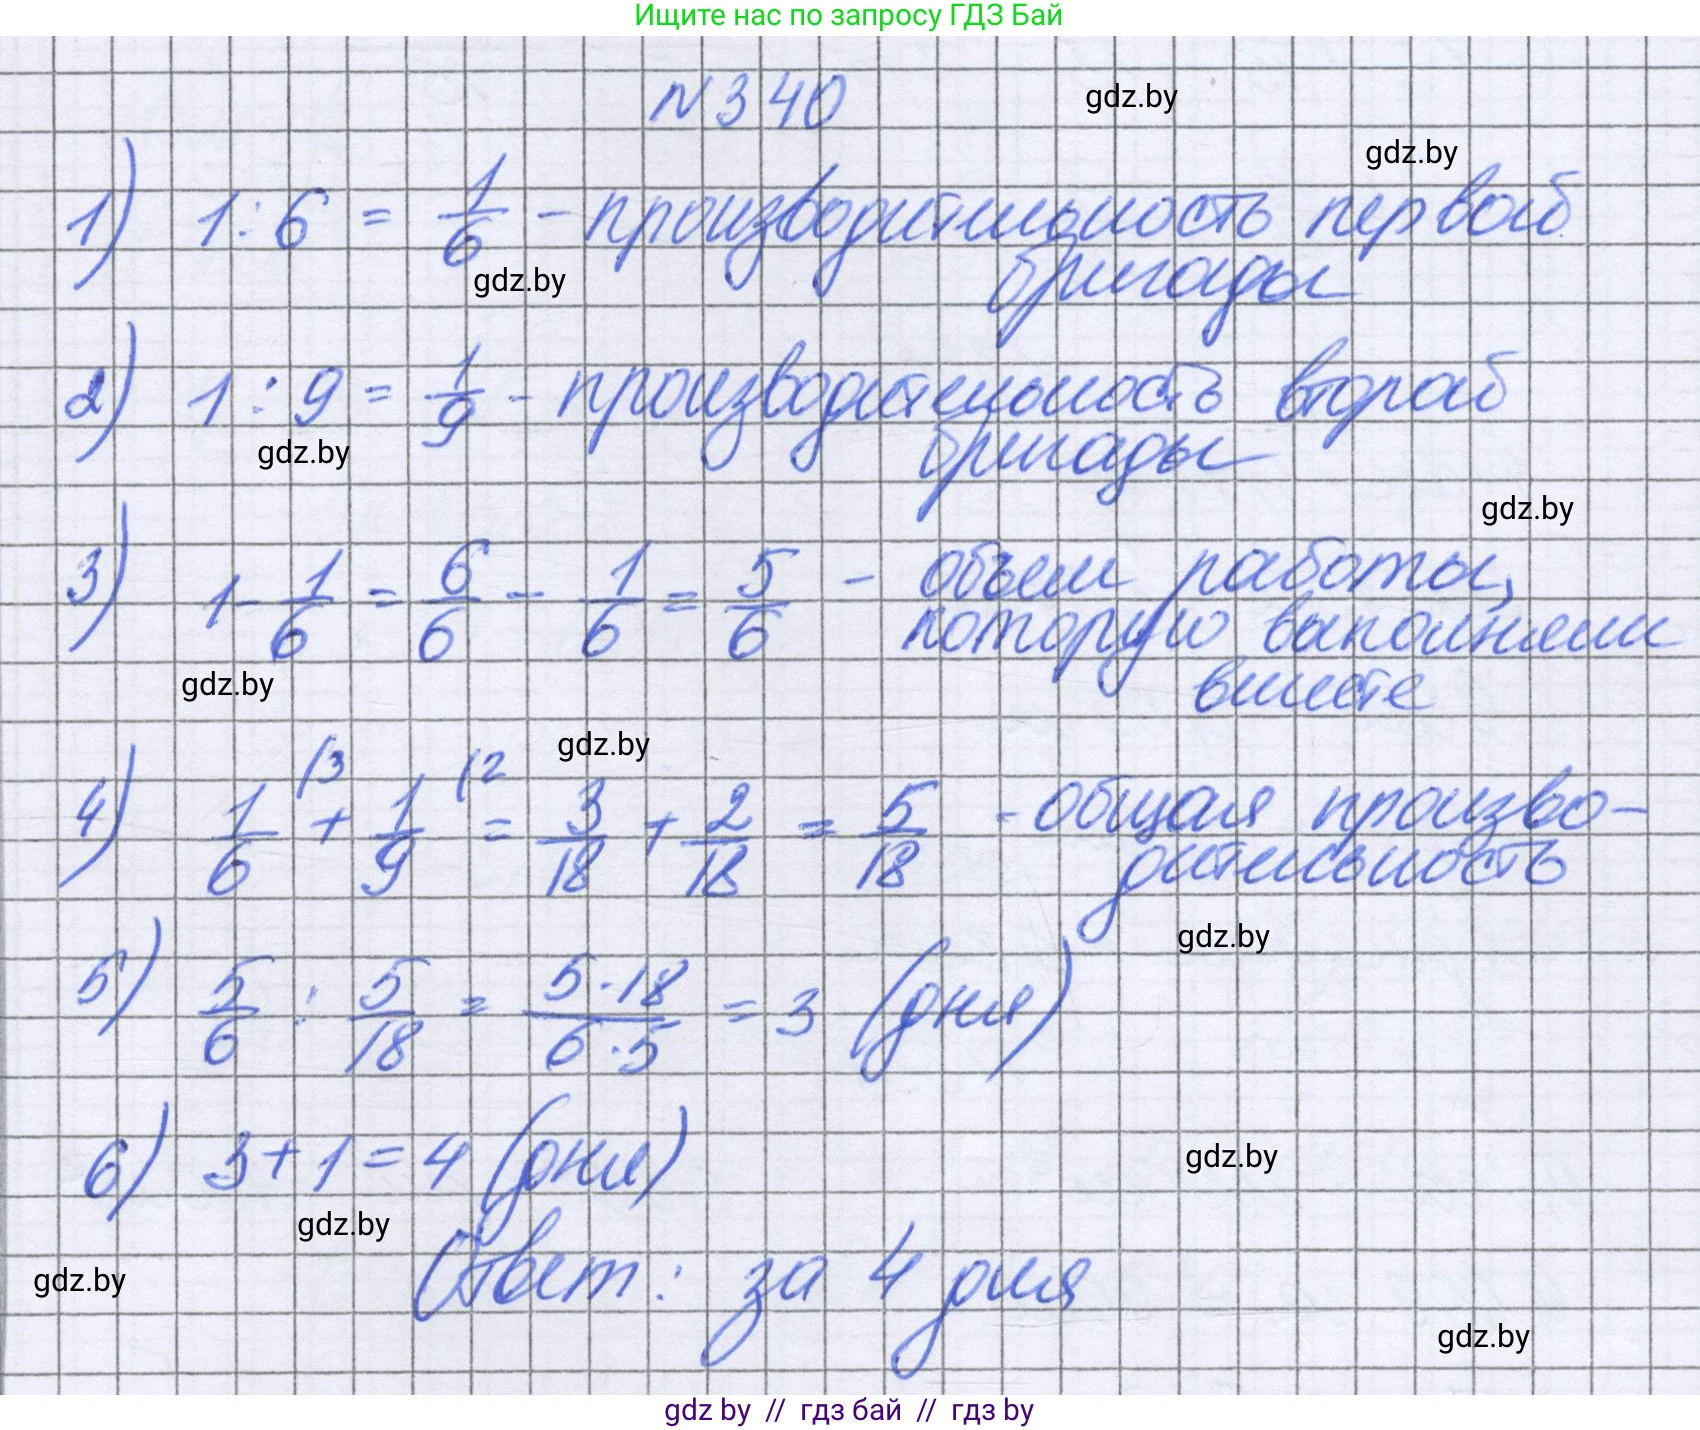 Ищите нас по запросу ГДЗ Бай
№340
gdz.by
gdz.by
1) 1:6 = 1/6 - производительность первой
бригады
gdz.by
2) 1:9 = 1/9 - производительность второй
бригады
gdz.by
gdz.by
3) 1 - 1/6 = 6/6 - 1/6 = 5/6 - объем работы,
которую выполняли
вместе
gdz.by
gdz.by
4) 1/6 (3 + 1/9 (2 = 3/18 + 2/18 = 5/18 - общая произво-
дительность
gdz.by
5) 5/6 : 5/18 = 5·18/6·5 = 3 (дня)
6) 3+1=4 (дня)
gdz.by
gdz.by
Ответ: за 4 дня
gdz.by
gdz.by
gdz by // гдз бай // гдз by